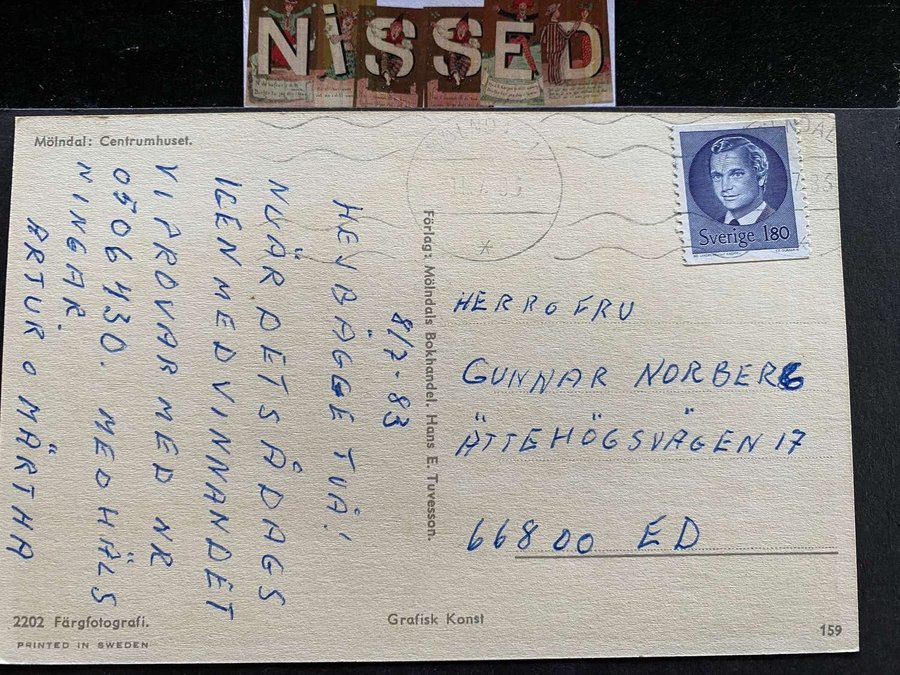 NISSED
Mölndal: Centrumhuset.
Sverige 180
8/7-83
HEJ BÄGGE TVÅ!
NU ÄR DET SÅ DAGS
IGEN MED VINNANDET
VI PROVAR MED NR
0506430. MED HÄLS
NINGAR.
ARTUR o MÄRTHA
Förlag: Mölndals Bokhandel. Hans E. Tuvesson.
HERR o FRU
GUNNAR NORBERG
ÄTTEHÖGSVÄGEN 17
66800 ED
2202 Färgfotografi.
PRINTED IN SWEDEN
Grafisk Konst
159